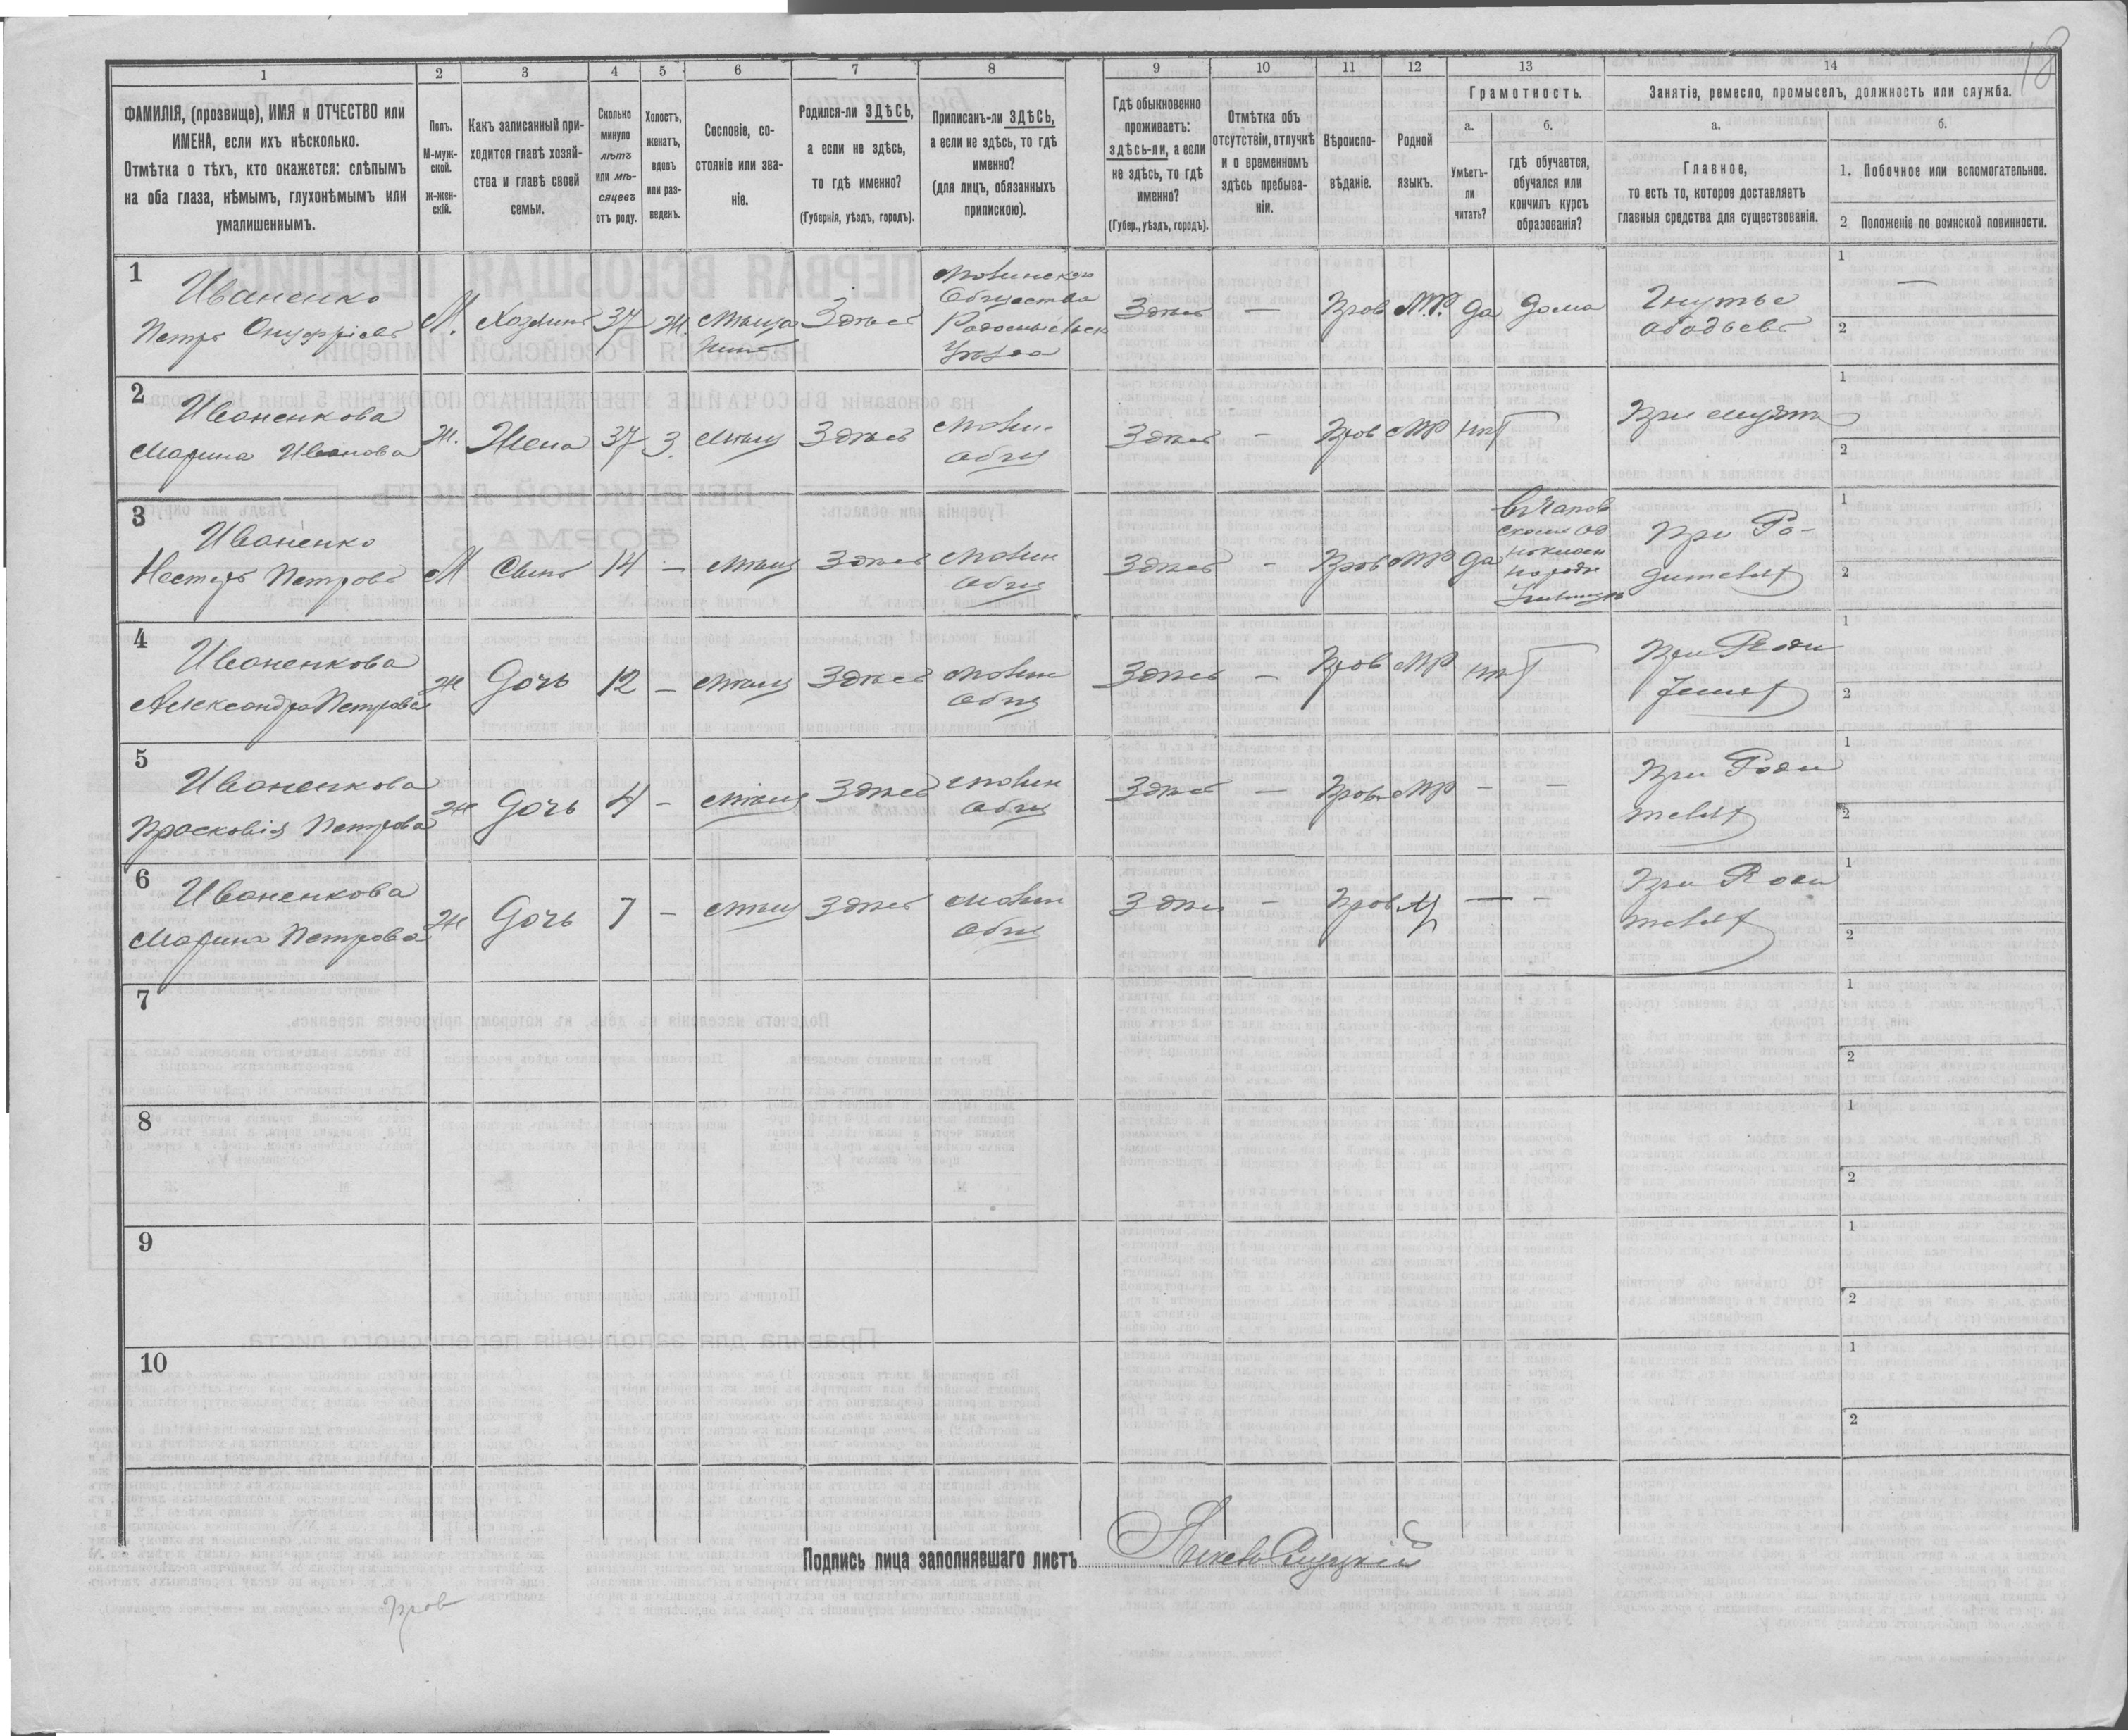 18
1 2 3 4 5 6 7 8 9 10 11 12 13 14
ФАМИЛІЯ, (прозвище), ИМЯ и ОТЧЕСТВО или
ИМЕНА, если ихъ нѣсколько.
Отмѣтка о тѣхъ, кто окажется: слѣпымъ
на оба глаза, нѣмымъ, глухонѣмымъ или
умалишеннымъ.
Полъ.
М-муж-
ской.
ж-жен-
скій.
Какъ записанный при-
ходится главѣ хозяй-
ства и главѣ своей
семьи.
Сколько
минуло
лѣтъ
или мѣ-
сяцевъ
отъ роду.
Холостъ,
женатъ,
вдовъ
или раз-
веденъ.
Сословіе, со-
стояніе или зва-
ніе.
Родился-ли ЗДѢСЬ,
а если не здѣсь,
то гдѣ именно?
(Губернія, уѣздъ, городъ).
Приписанъ-ли ЗДѢСЬ,
а если не здѣсь, то гдѣ
именно?
(для лицъ, обязанныхъ
припискою).
Гдѣ обыкновенно
проживаетъ:
здѣсь-ли, а если
не здѣсь, то гдѣ
именно?
(Губер., уѣздъ, городъ).
Отмѣтка объ
отсутствіи, отлучкѣ
и о временномъ
здѣсь пребыва-
ніи.
Вѣроиспо-
вѣданіе.
Родной
языкъ.
Грамотность.
а.
Умѣетъ-
ли
читать?
б.
гдѣ обучается,
обучался или
кончилъ курсъ
образованія?
Занятіе, ремесло, промыселъ, должность или служба.
а.
Главное,
то есть то, которое доставляетъ
главныя средства для существованія.
б.
1. Побочное или вспомогательное.
2 Положеніе по воинской повинности.
1
Иваненко
Петръ Онуфріевъ
М. Хозяинъ 37 Ж. Мѣща
нинъ
Здѣсь
Общества
Уѣзда
Здѣсь — Прав М.Р. да дома
Гнутье
ободьевъ
1 —
2
2
Иваненкова
Марина Иванова
Ж. Жена 37 З. Мѣщ Здѣсь
Общ
Здѣсь - Прав МР нѣт
При мужѣ
1
2
3
Иваненко
Несторъ Петровъ
М Сынъ 14 — Мѣщ Здѣсь
Общ
Здѣсь - Прав МР да
При Ро-
дителях
1
2
4
Иваненкова
Александра Петрова
Ж Дочь 12 — Мѣщ Здѣсь
Общ
Здѣсь — Прав МР нѣт
При Роди
телях
1
2
5
Иваненкова
Прасковія Петрова
Ж Дочь 4 - Мѣщ Здѣсь
Общ
Здѣсь — Прав МР - —
При Роди
телях
1
2
6
Иваненкова
Марина Петрова
Ж Дочь 7 - Мѣщ Здѣсь
Общ
Здѣсь - Прав — -
При Роди
телях
1
2
7
1
2
8
1
2
9
1
2
10
1
2
Подпись лица заполнявшаго листъ
Прав